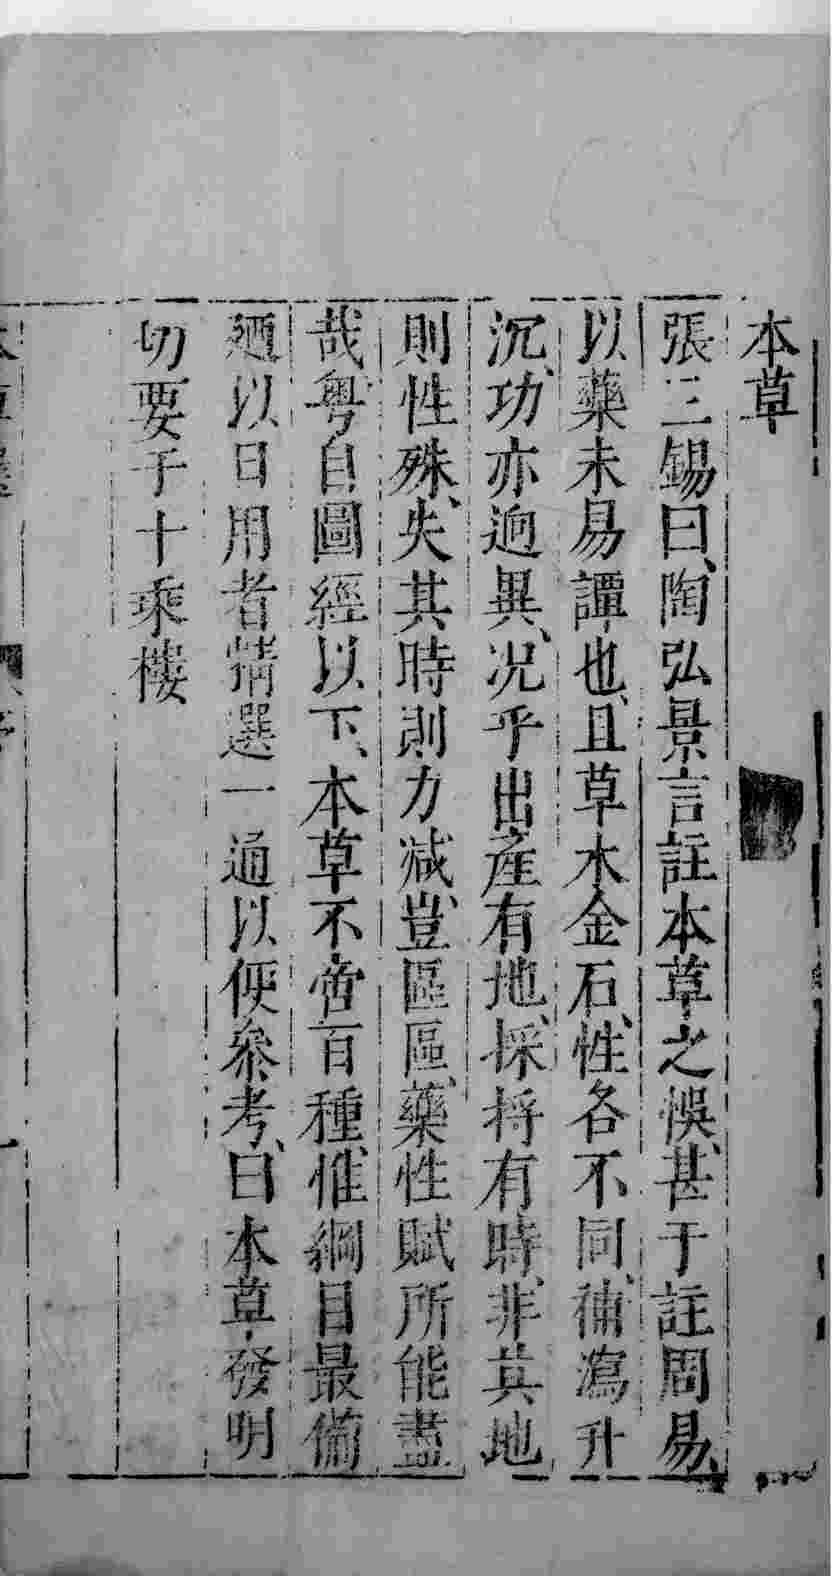 本草
張三錫曰、陶弘景言註本草之悞、甚于註周易、
以藥未易譚也、且草木金石、性各不同、補瀉升
沉、功亦逈異、况乎出產有地、採捋有時、非其地
則性殊、失其時則力减、豈區區、藥性賦所能盡
哉、粤自圖經以下、本草不啻百種、惟綱目最備
廼以日用者精選一通以便叅考、曰本草發明
切要于十乘樓